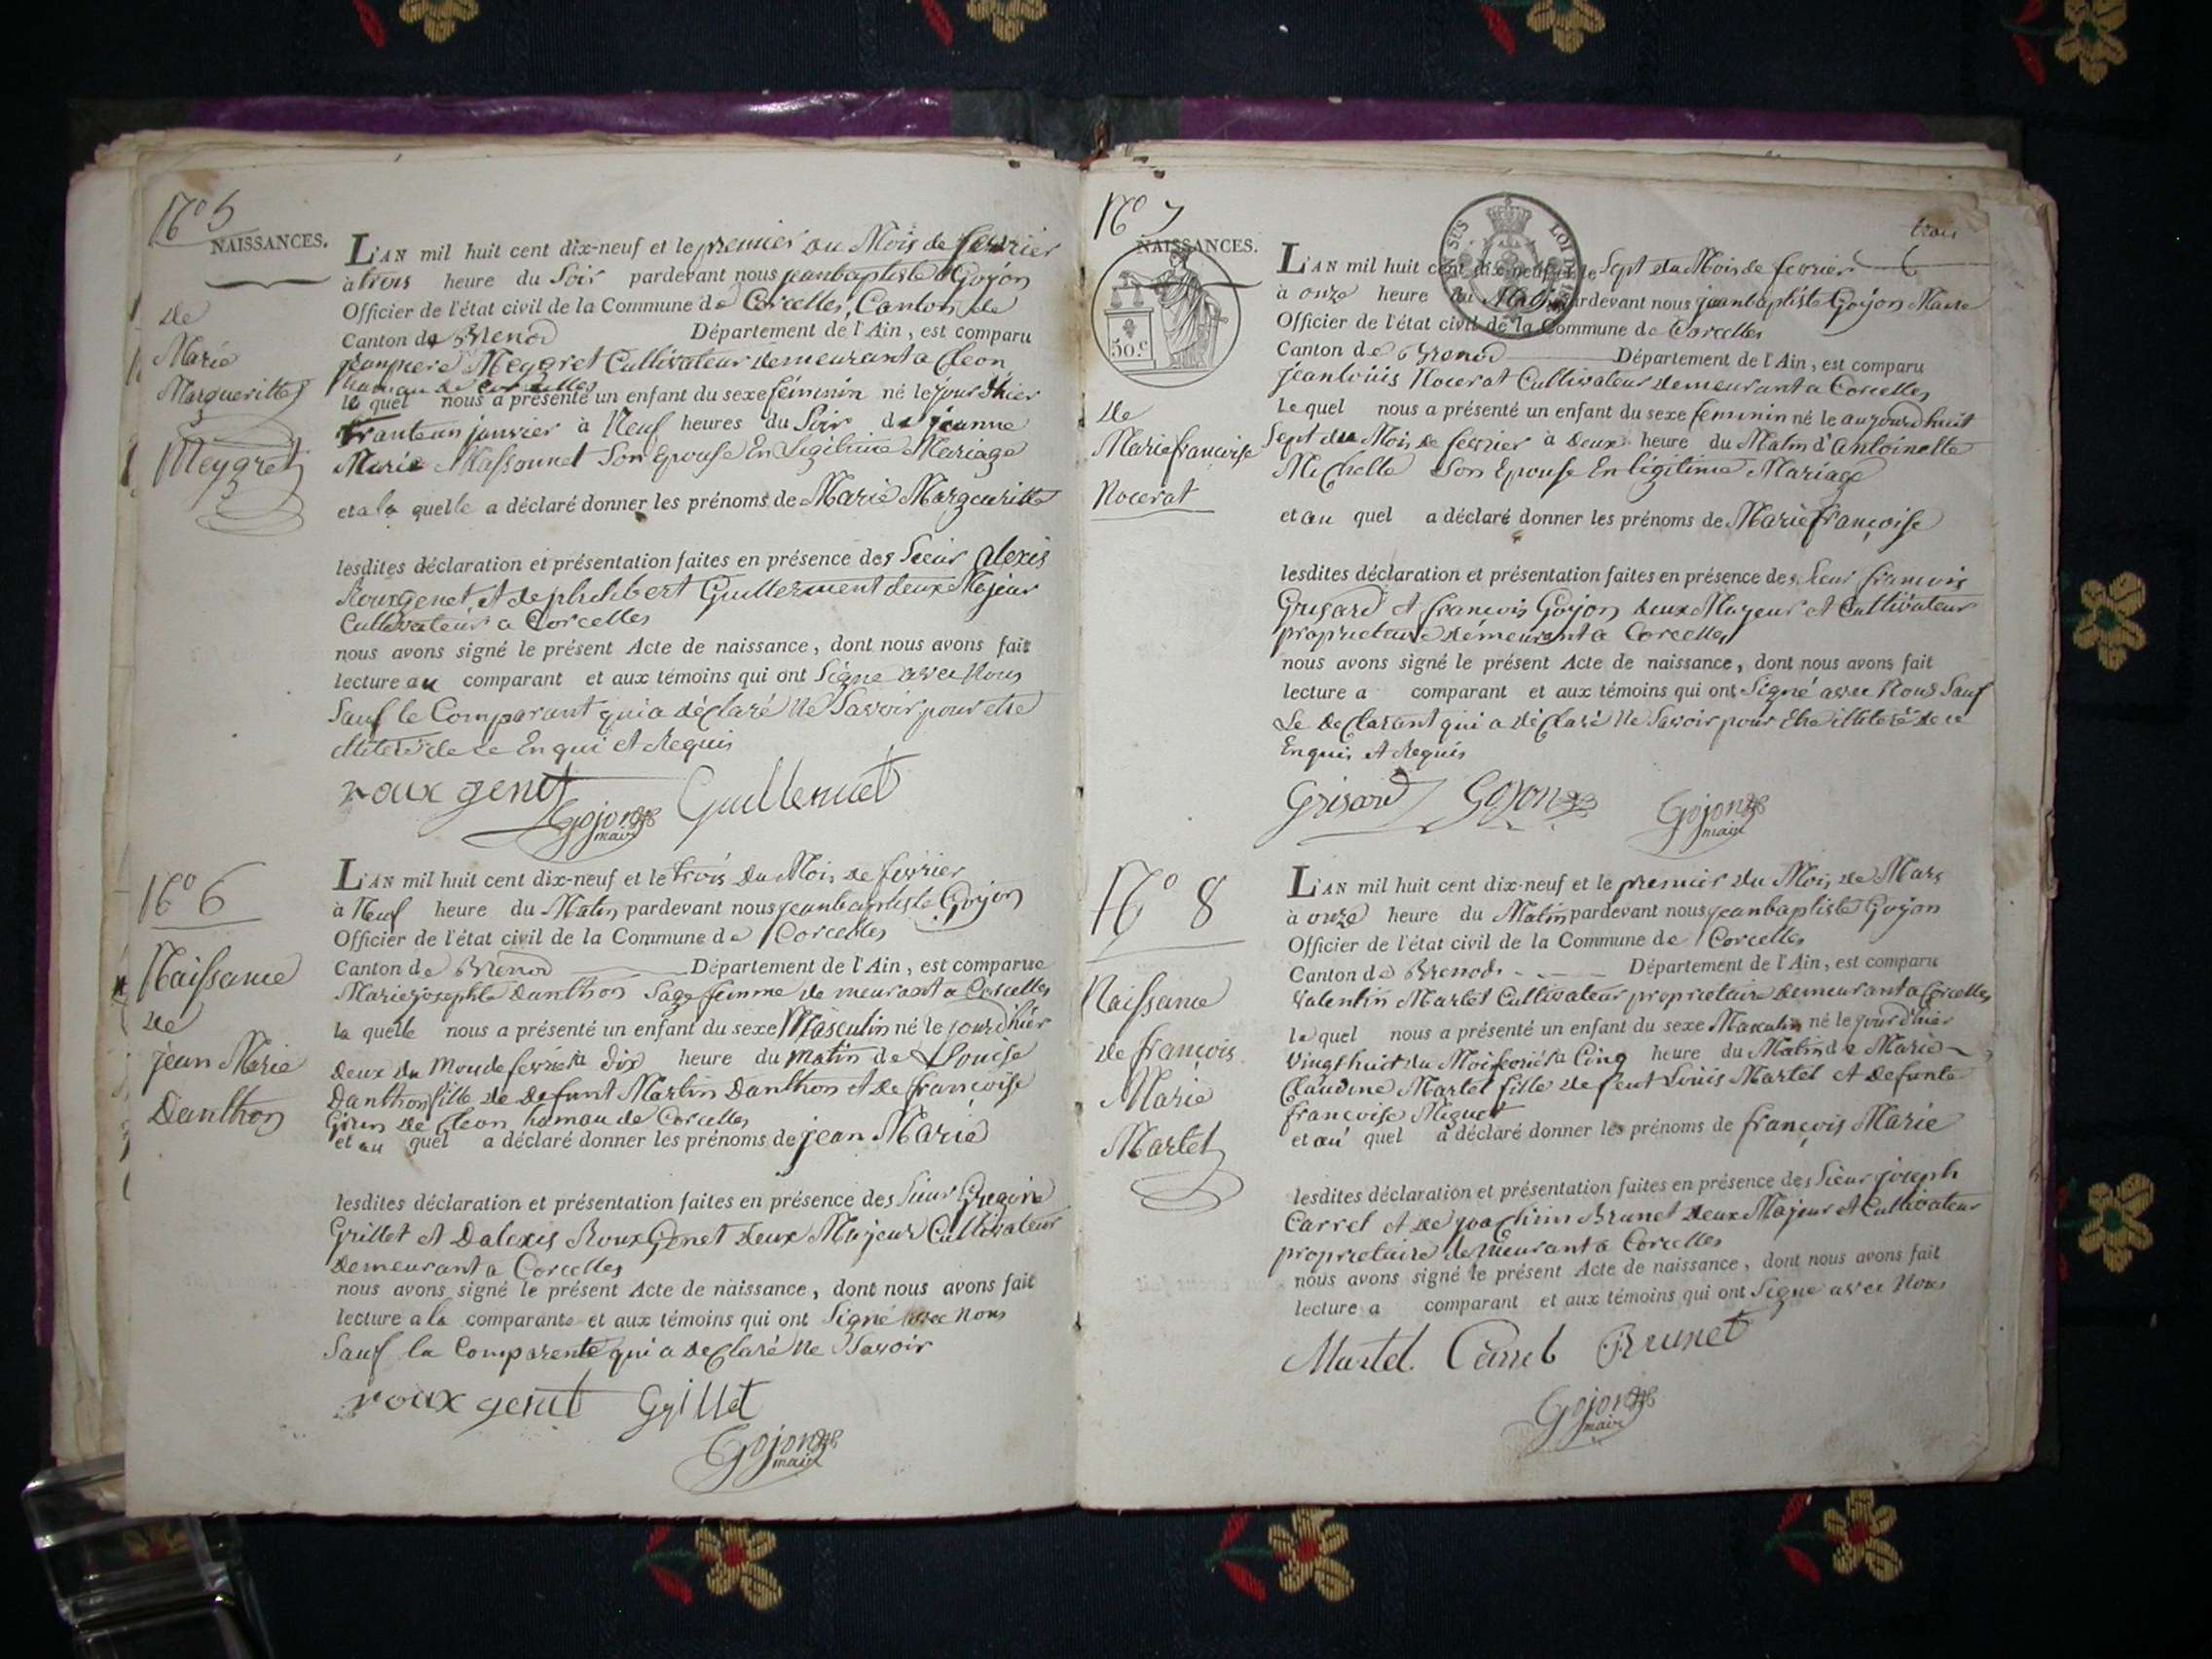 N° 5
NAISSANCES.
de
Marie
Margueritte
Meygret
L'AN mil huit cent dix-neuf et le premier du Mois de fevrier
à trois heure du Soir pardevant nous jeanbaptiste Goyon
Officier de l'état civil de la Commune de Corcelles, Canton de
Canton de Brenod Département de l'Ain, est comparu
jeanpierre Meygret Cultivateur demeurant a Cleon
hamau de Corcelles
le quel nous a présenté un enfant du sexe féminin né le jour d'hier
tranteun janvier à Neuf heures du Soir de jeanne
Marie Massonnet Son Epouse En Legitime Mariage
et a la quelle a déclaré donner les prénoms de Marie Margueritte
lesdites déclaration et présentation faites en présence des Sieur Alexis
Rouxgenet, et de philibert Guillermet deux Majeur
Cultivateur a Corcelles
nous avons signé le présent Acte de naissance, dont nous avons fait
lecture au comparant et aux témoins qui ont Signe avec Nous
Sauf le Comparant qui a déclaré Ne Savoir pour etre
illiteré de ce Enqui et Requis
roux genet Guillermet
Gojon
maire
N° 6
Naissance
de
jean Marie
Danthon
L'AN mil huit cent dix-neuf et le trois du Mois de fevrier
à Neuf heure du Matin pardevant nous jeanbaptiste Goyon
Officier de l'état civil de la Commune de Corcelles
Canton de Brenod Département de l'Ain, est comparue
Mariejosephte Danthon Sage femme demeurant a Corcelles
la quelle nous a présenté un enfant du sexe Masculin né le jour d'hier
deux du fevrier à dix heure du matin de Louise
Danthon fille de defunt Martin Danthon et de françoise
de Cleon hamau de Corcelles
et au quel a déclaré donner les prénoms de jean Marie
lesdites déclaration et présentation faites en présence des Sieur Gregoire
Grillet et Dalexis Roux Genet deux Majeur Cultivateur
demeurant a Corcelles
nous avons signé le présent Acte de naissance, dont nous avons fait
lecture a la comparante et aux témoins qui ont Signé avec Nous
Sauf la Comparente qui a declaré Ne Savoir
roux genet Grillet
Gojon
maire
N° 7
trois
NAISSANCES.
50.c
de
Marie françoise
Nocerat
L'AN mil huit cent dix-neuf et le Sept du Mois de fevrier
à onze heure du Matin pardevant nous jeanbaptiste Goyon Maire
Officier de l'état civil de la Commune de Corcelles
Canton de Brenod Département de l'Ain, est comparu
jeanlouis Nocerat Cultivateur demeurant a Corcelles
le quel nous a présenté un enfant du sexe feminin né le aujourdhuit
Sept du Mois de fevrier à deux heure du Matin d'Antoinette
Michelle Son Epouse En légitime Mariage
et au quel a déclaré donner les prénoms de Marie françoise
lesdites déclaration et présentation faites en présence des Sieur francois
Grisard et francois Goyon deux Majeur et Cultivateur
proprietaire démeurant a Corcelles
nous avons signé le présent Acte de naissance, dont nous avons fait
lecture a comparant et aux témoins qui ont Signé avec Nous Sauf
Le declarant qui a déclaré Ne Savoir pour Etre illiteré de ce
Enquis et Requis
Grisard Goyon Gojon
maire
N° 8
Naissance
de françois
Marie
Martel
L'AN mil huit cent dix-neuf et le premier du Mois de Mars
à onze heure du Matin pardevant nous jeanbaptiste Goyon
Officier de l'état civil de la Commune de Corcelles
Canton de Brenod Département de l'Ain, est comparu
Valentin Martel Cultivateur proprietaire demeurant a Corcelles
le quel nous a présenté un enfant du sexe Masculin né le jour d'hier
Vingt huit du Moi à Cinq heure du Matin de Marie
Claudine Martel fille de feut Louis Martel et defunte
francoise Miguet
et au quel a déclaré donner les prénoms de françois Marie
lesdites déclaration et présentation faites en présence des Sieur joseph
Carrel et de joachim Brunet deux Majeur et Cultivateur
proprietaire demeurant a Corcelles
nous avons signé le présent Acte de naissance, dont nous avons fait
lecture a comparant et aux témoins qui ont Signe avec Nous
Martel Carrel Brunet
Gojon
maire